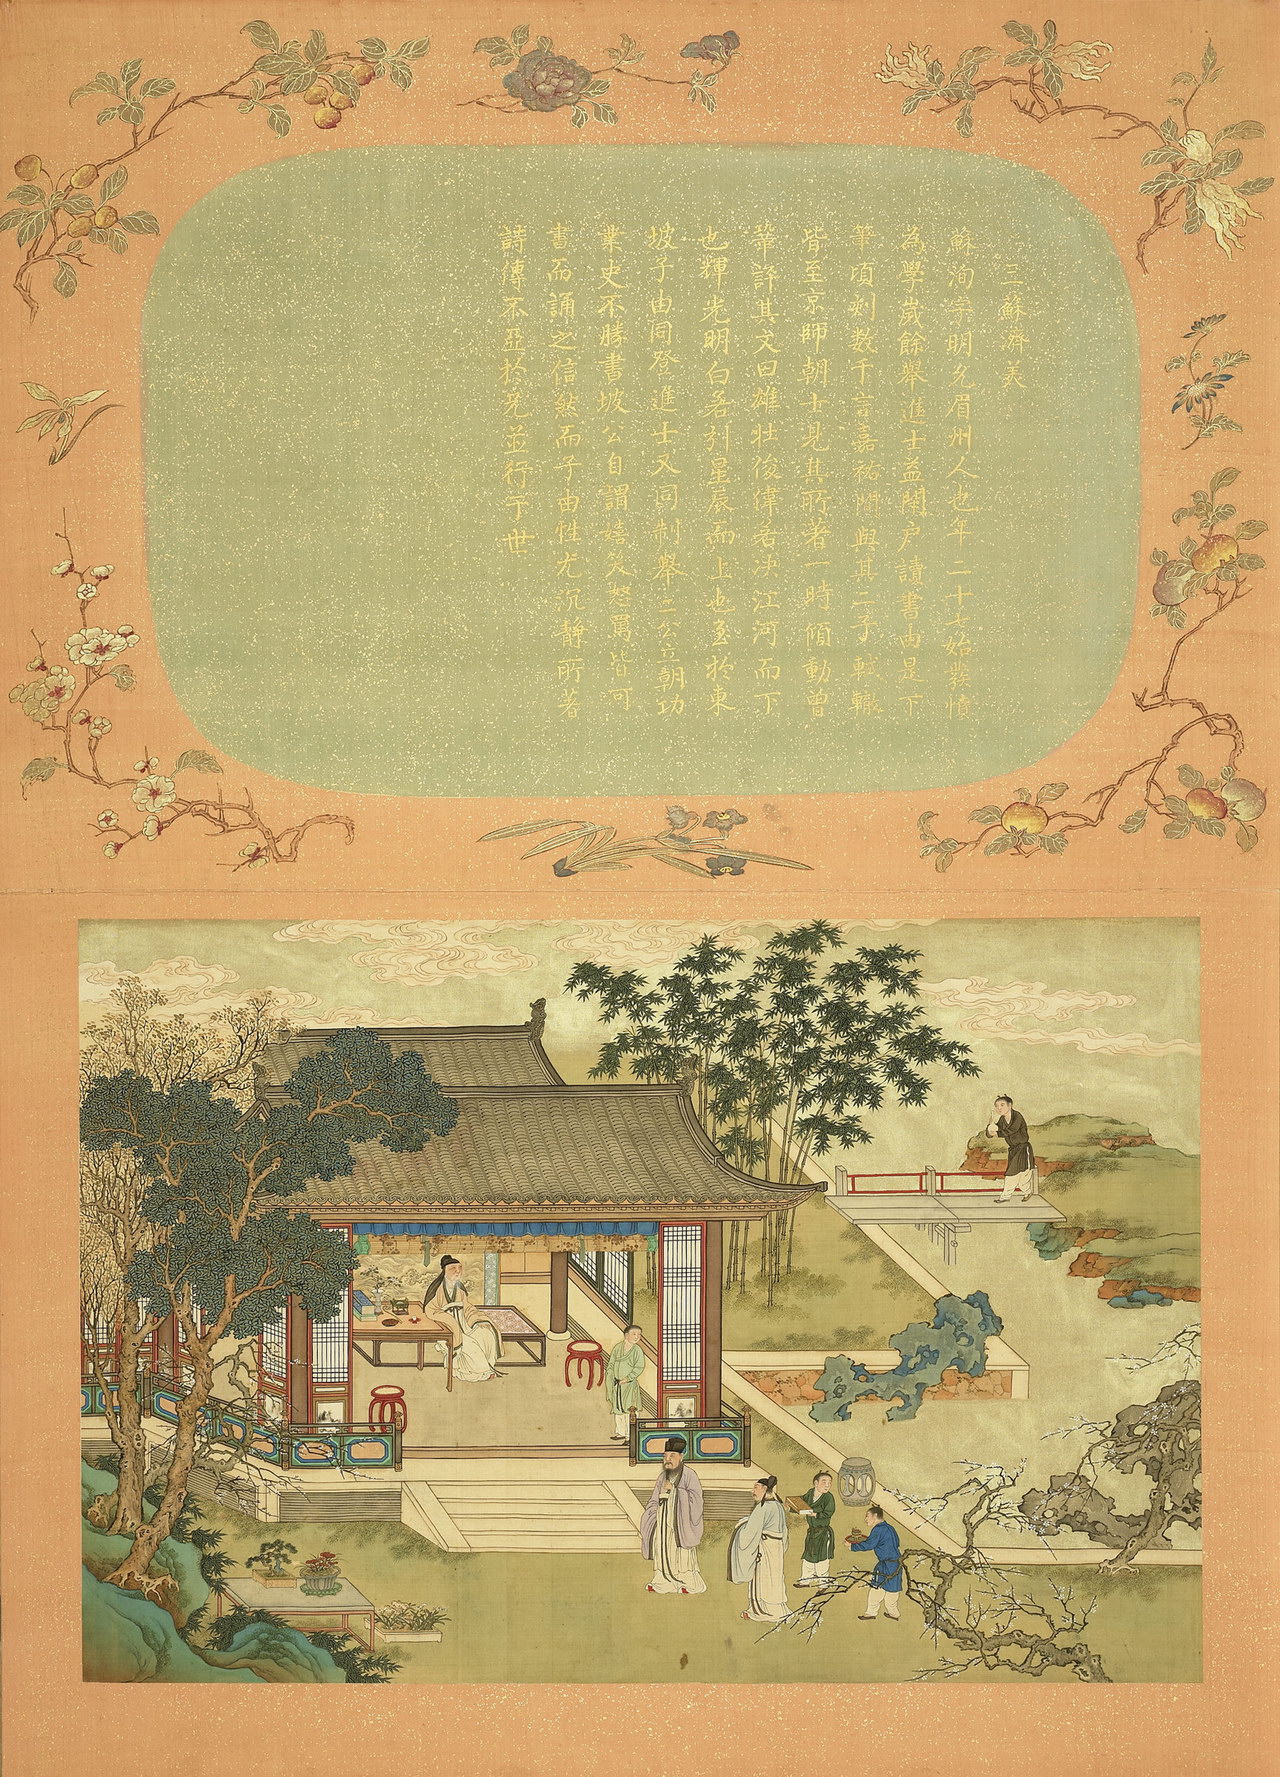 三蘇濟美
蘇洵字明允眉州人也年二十七始發憤
為學歲餘舉進士益閉户讀書由是下
筆頃刻數千言嘉祐間與其二子軾轍
皆至京師朝士見其所著一時傾動曾
鞏評其文曰雄壮俊偉若决江河而下
也輝光明白若引星辰而上也至於東
坡子由同登進士又同制舉二公立朝功
業史不勝書坡公自謂嬉笑怒罵皆可
書而誦之信然而子由性尤沉静所著
詩傳不亞於兄並行于世